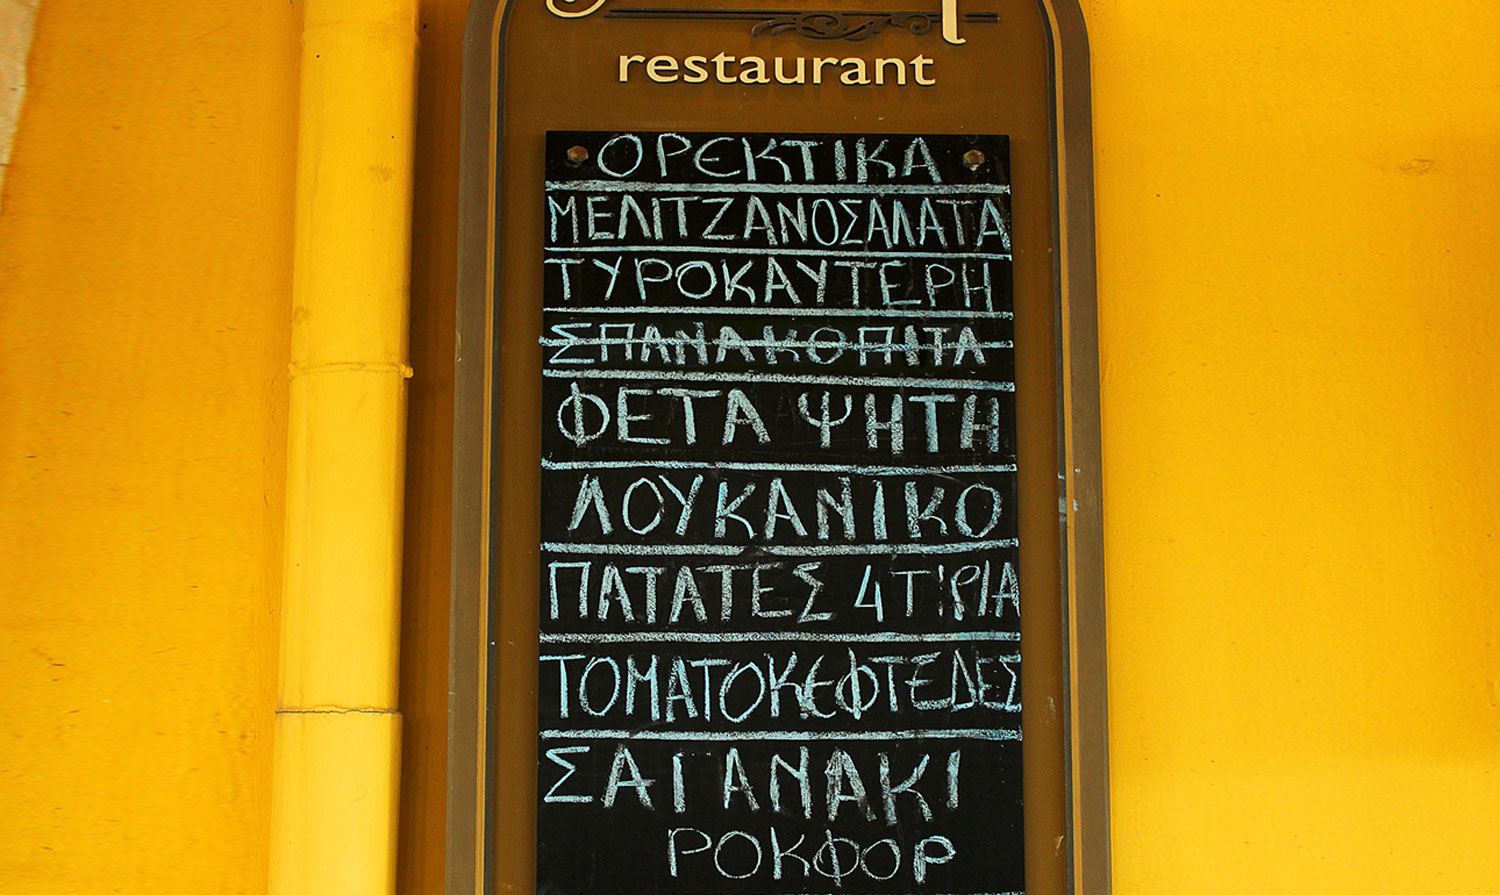 restaurant
ΟΡΕΚΤΙΚΑ
ΜΕΛΙΤΖΑΝΟΣΑΛΑΤΑ
ΤΥΡΟΚΑΥΤΕΡΗ
ΣΠΑΝΑΚΟΠΙΤΑ
ΦΕΤΑ ΨΗΤΗ
ΛΟΥΚΑΝΙΚΟ
ΠΑΤΑΤΕΣ 4 ΤΥΡΙΑ
ΤΟΜΑΤΟΚΕΦΤΕΔΕΣ
ΣΑΓΑΝΑΚΙ
ΡΟΚΦΟΡ